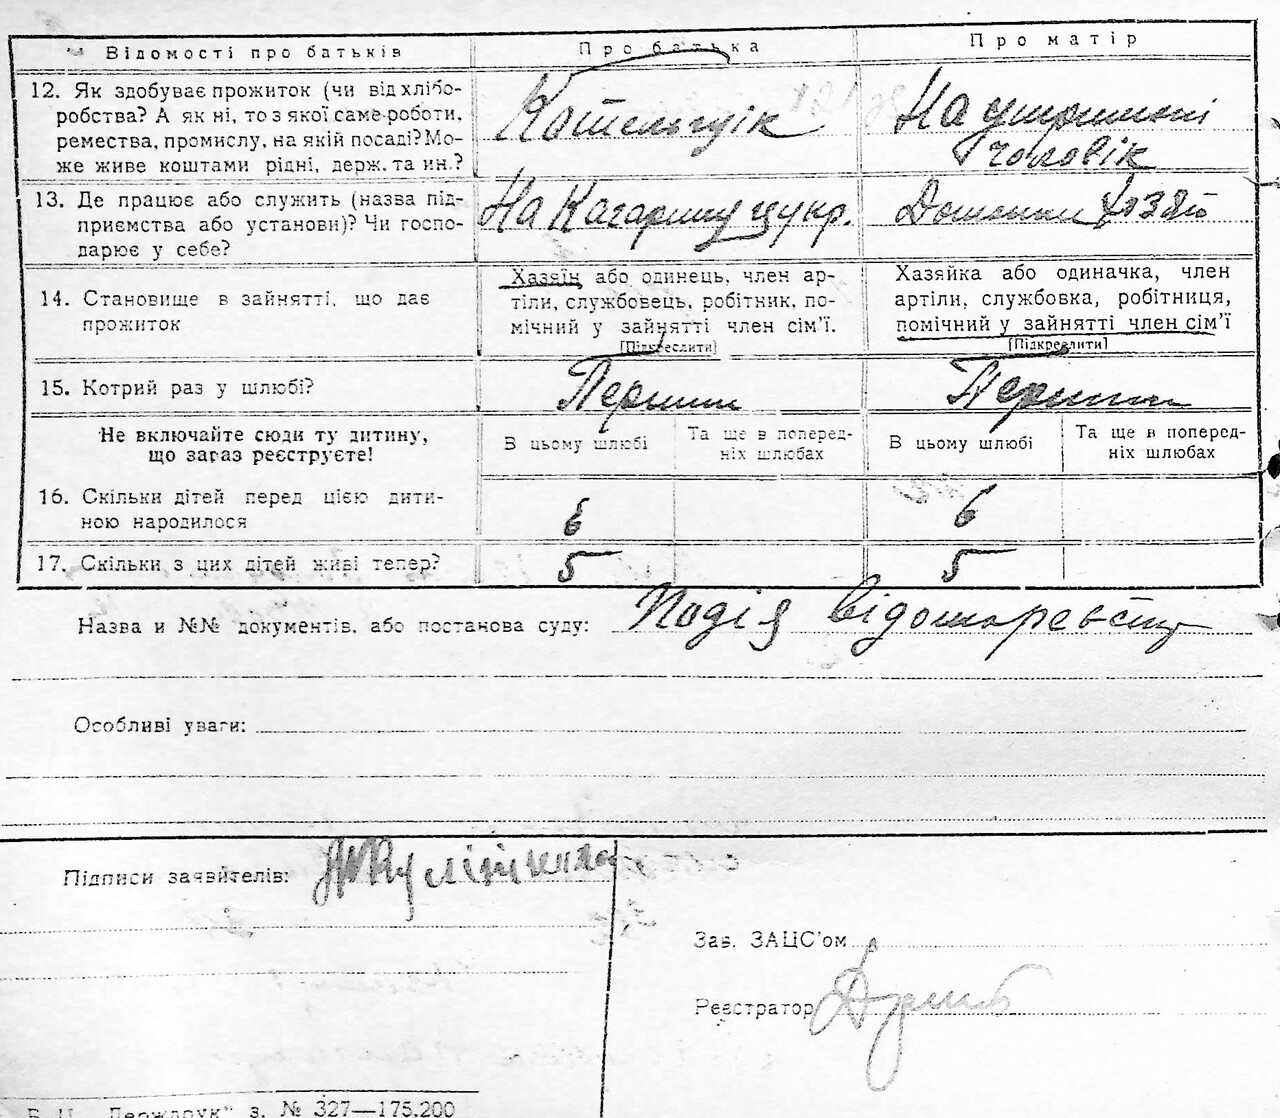 Відомості про батьків
Про батька
Про матір
12. Як здобуває прожиток (чи від хлібо-
робства? А як ні, то з якої саме роботи,
ремества, промислу, на якій посаді? Мо-
же живе коштами рідні, держ. та ин.?
Котельщік
На утриманні
чоловік
13. Де працює або служить (назва під-
приємства або установи)? Чи госпо-
дарює у себе?
На Кагарлиц цукр.
14. Становище в зайнятті, що дає
прожиток
Хазяїн або одинець, член ар-
тіли, службовець, робітник, по-
мічний у зайнятті член сім'ї.
[Підкреслити]
Хазяйка або одиначка, член
артіли, службовка, робітниця,
помічний у зайнятті член сім'ї
[Підкреслити]
15. Котрий раз у шлюбі?
Перший
Перший
Не включайте сюди ту дитину,
що зараз реєструєте!
В цьому шлюбі
Та ще в поперед-
ніх шлюбах
В цьому шлюбі
Та ще в поперед-
ніх шлюбах
16. Скільки дітей перед цією дити-
ною народилося
6
6
17. Скільки з цих дітей живі тепер?
5
5
Назва и №№ документів, або постанова суду: Подія
Особливі уваги:
Підписи заявителів:
Зав. ЗАЦС'ом
Реєстратор
Держдрук" з. № 327—175.200